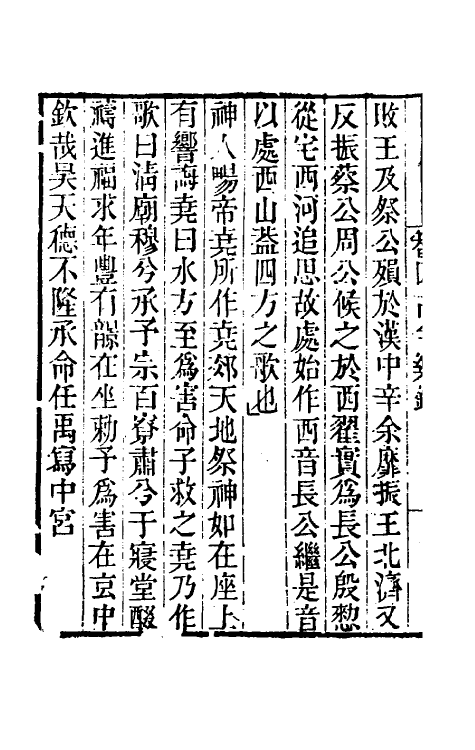 敗王及祭公殞於漢中辛余靡振王北濟又
反振蔡公周公候之於西翟實爲長公殷愸
從宅西河追思故處始作西音長公繼是音
以處西山蓋四方之歌也
神人暢帝堯所作堯郊天地祭神如在座上
有響誨堯曰水方至爲害命子救之堯乃作
歌曰淸廟穆兮承予宗百寮肅兮于寢堂醊
禱進福求年豐有龥在坐勅予爲害在玄中
欽哉昊天德不隆承命任禹寫中宮